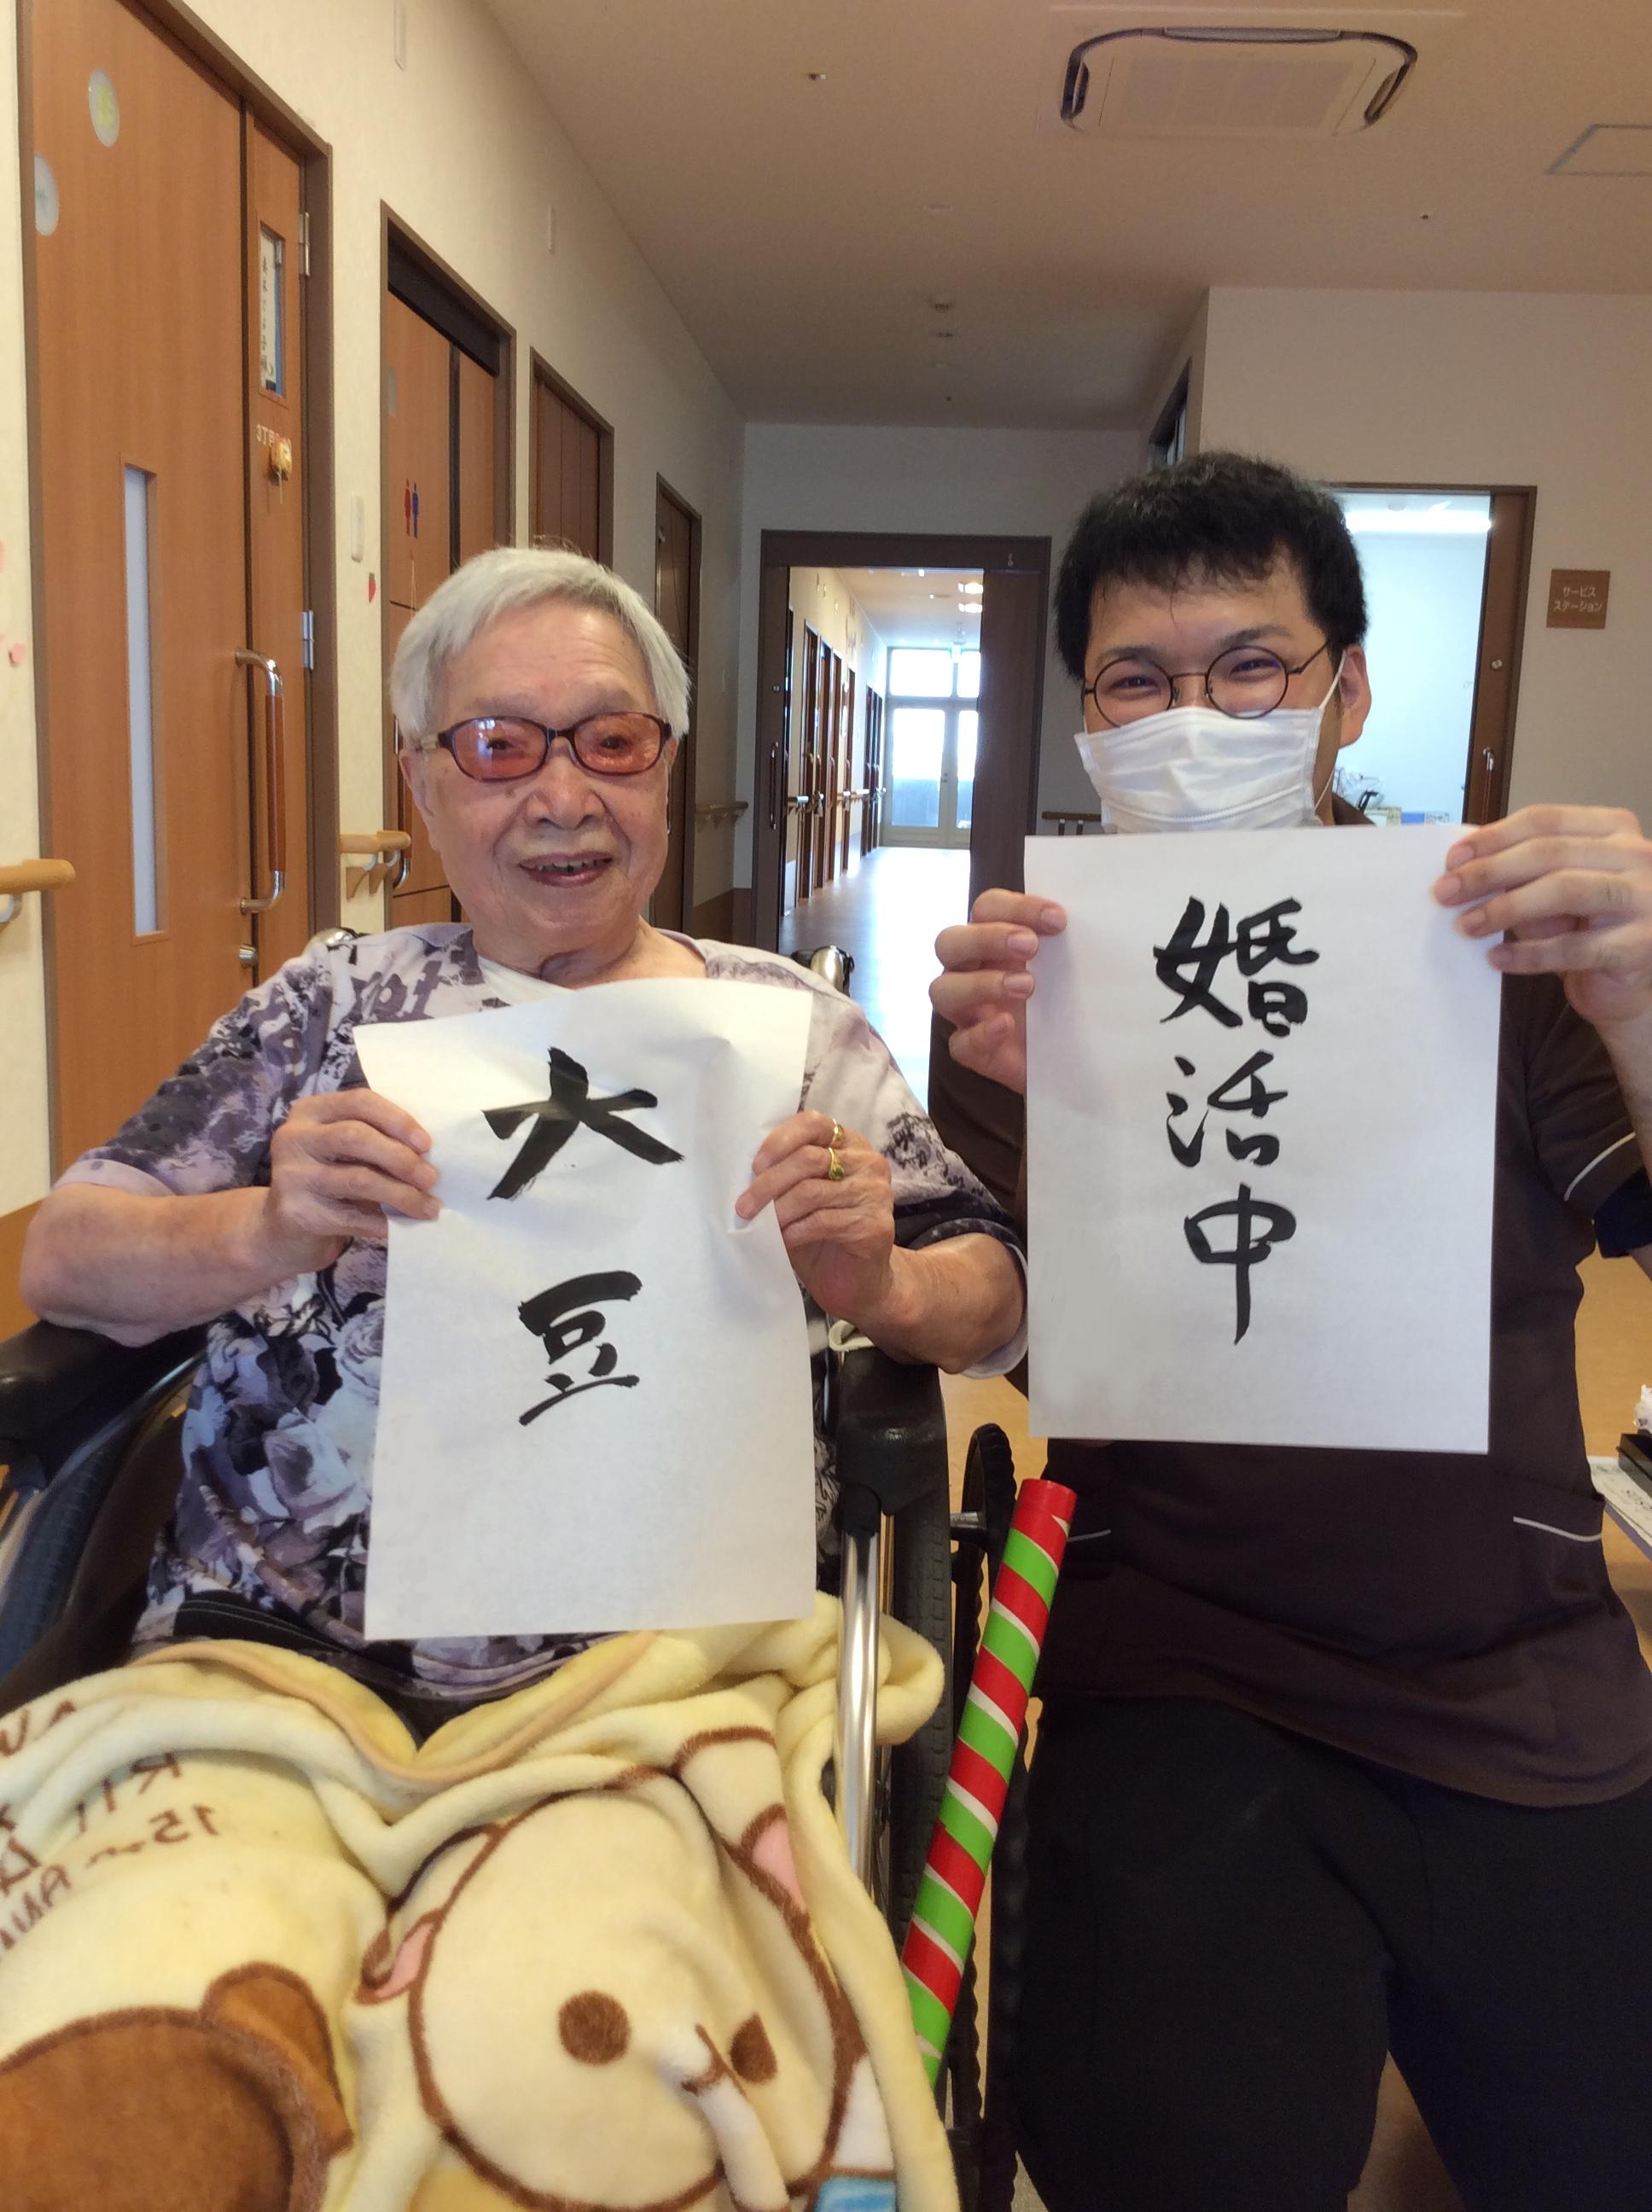 大豆
婚活中
サービス
ステーション
3丁目